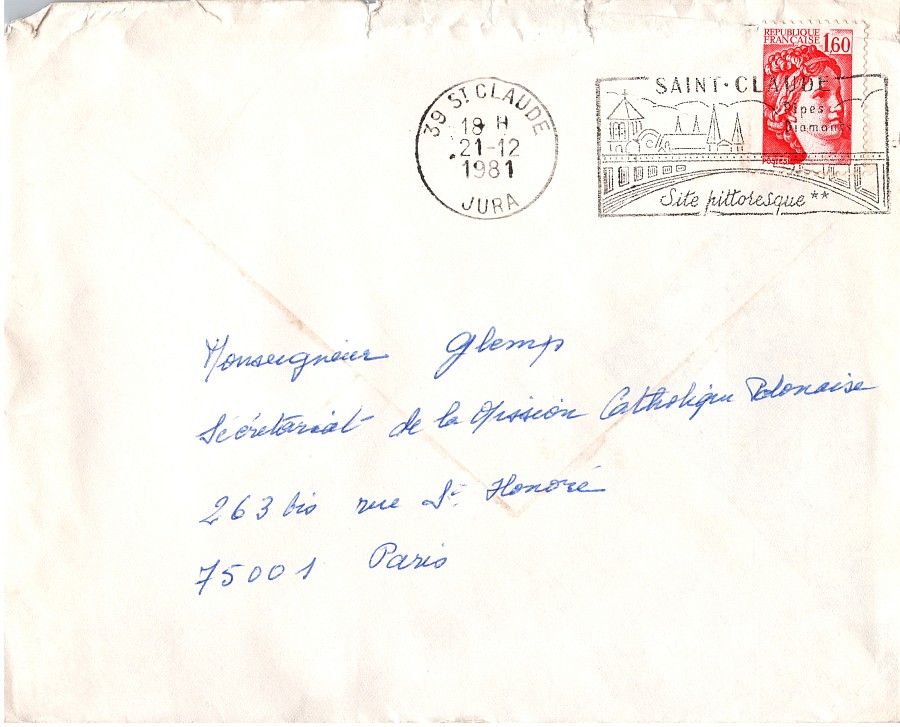 REPUBLIQUE
FRANÇAISE 1,60
POSTES
39 ST CLAUDE
18 H
21-12
1981
JURA
SAINT-CLAUDE
Pipes
Diamants
Site pittoresque **
Monseigneur Glemp
Sécrétariat de la Mission Catholique Polonaise
263 bis rue St Honoré
75001 Paris